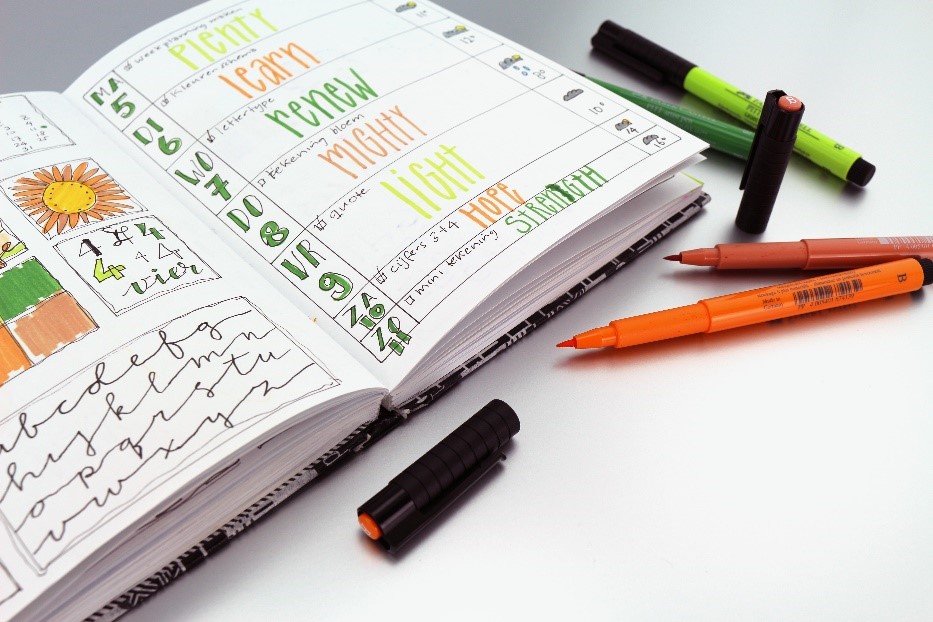 MA
5
weekplanning maken
PLENTY
11°
DI
6
kleurenschema
learn
12°
WO
7
lettertype
renew
8°
DO
8
tekening bloem
MIGHTY
10°
VR
9
quote
light
14
ZA
10
cijfers 3+4
HOPE
16°
ZO
11
mini tekening
STRENGTH
4 4
4 4 4
vier
abcdefg
hijklmn
opqrstu
vwxyz
B